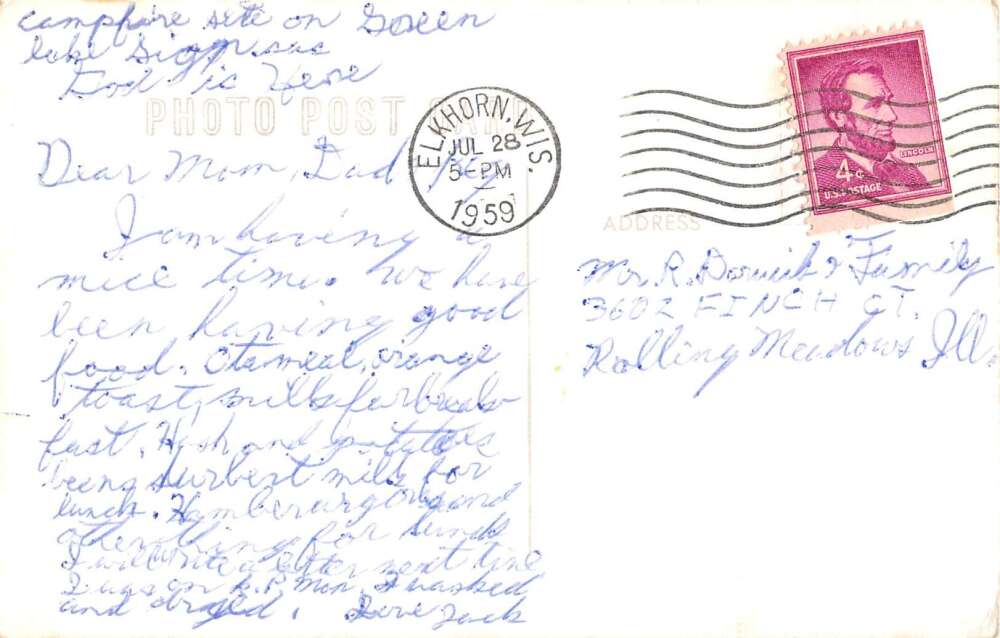 campfire site on Green
lake
God is Here
PHOTO POST CARD
Dear Mom, Dad,
ELKHORN, WIS.
JUL 28
5-PM
1959
LINCOLN
4¢
U.S. POSTAGE
ADDRESS
I am having a
nice time. We have
been having good
food. Otameal, orange
toast, milk for break
fast. Hash and potatoes
beens surbert milk for
lunch. Hamberargers and
other thing for
I will write a letter next time
I was on K.P. Mon. I washed
and dryed. Love Jack
Mr. R. & Family
3602 FINCH CT.
Rolling Meadows Ill.